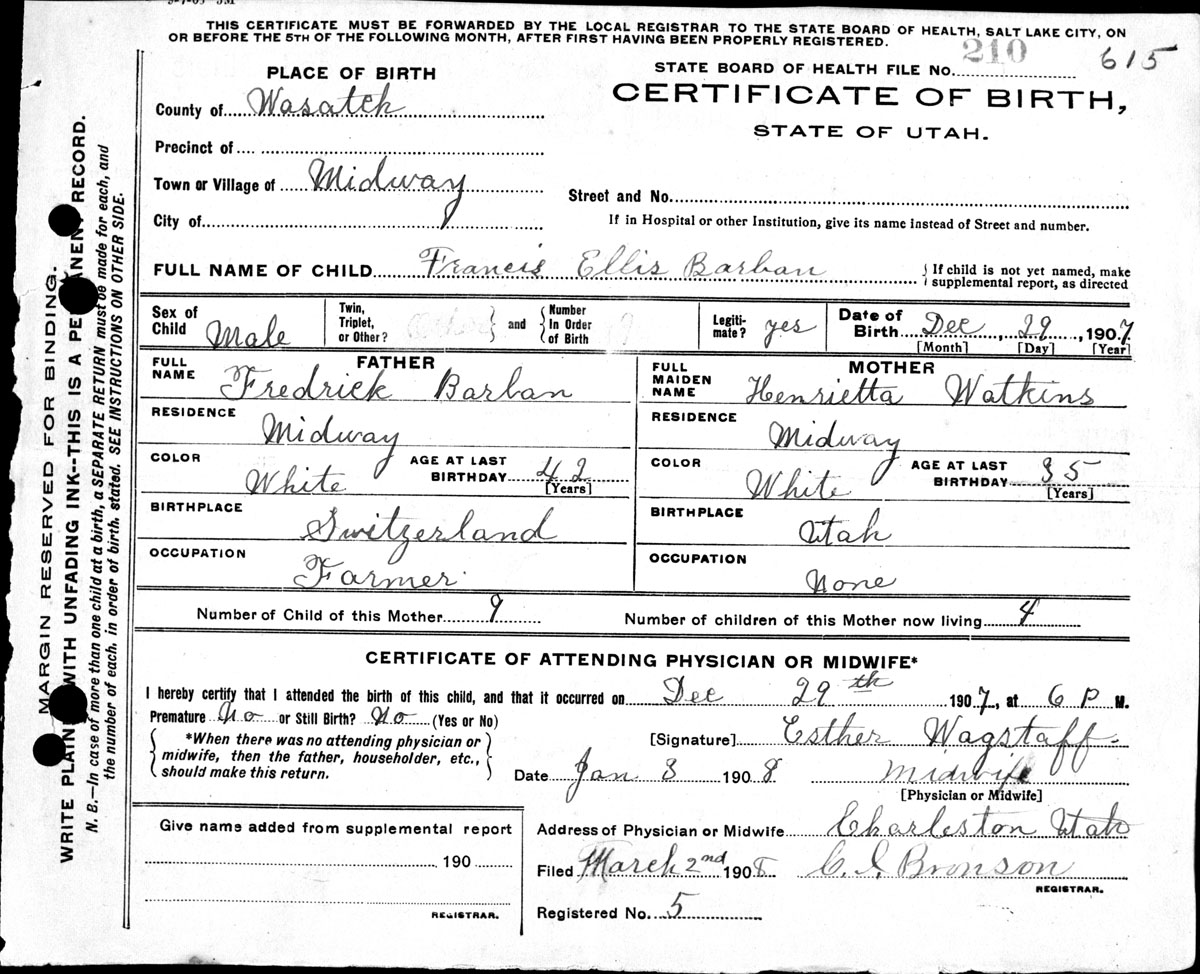 THIS CERTIFICATE MUST BE FORWARDED BY THE LOCAL REGISTRAR TO THE STATE BOARD OF HEALTH, SALT LAKE CITY, ON
OR BEFORE THE 5TH OF THE FOLLOWING MONTH, AFTER FIRST HAVING BEEN PROPERLY REGISTERED.
STATE BOARD OF HEALTH FILE No. 210 615
CERTIFICATE OF BIRTH,
STATE OF UTAH.
PLACE OF BIRTH
County of Wasatch
Precinct of
Town or Village of Midway
Street and No.
City of
If in Hospital or other Institution, give its name instead of Street and number.
FULL NAME OF CHILD Francis Ellis Barban
If child is not yet named, make
supplemental report, as directed
Sex of Child Male
Twin, Triplet, or Other? and Number In Order of Birth
Legiti-mate? yes
Date of Birth Dec, 29, 1907
[Month] [Day] [Year]
FATHER
FULL NAME Fredrick Barban
RESIDENCE Midway
COLOR White AGE AT LAST BIRTHDAY 42
[Years]
BIRTHPLACE Switzerland
OCCUPATION Farmer
MOTHER
FULL MAIDEN NAME Henrietta Watkins
RESIDENCE Midway
COLOR White AGE AT LAST BIRTHDAY 35
[Years]
BIRTHPLACE Utah
OCCUPATION None
Number of Child of this Mother 9 Number of children of this Mother now living 4
CERTIFICATE OF ATTENDING PHYSICIAN OR MIDWIFE*
I hereby certify that I attended the birth of this child, and that it occurred on Dec 29th 1907, at 6 P M.
Premature No or Still Birth? No (Yes or No)
*When there was no attending physician or
midwife, then the father, householder, etc.,
should make this return.
[Signature] Esther Wagstaff
Date Jan 3 1908 Midwife
[Physician or Midwife]
Give name added from supplemental report
190
REGISTRAR.
Address of Physician or Midwife Charleston Utah
Filed March 2nd 1908 C. I. Bronson
REGISTRAR.
Registered No. 5
MARGIN RESERVED FOR BINDING.
WRITE PLAIN WITH UNFADING INK--THIS IS A PE ANEN RECORD.
N. B.—In case of more than one child at a birth, a SEPARATE RETURN must be made for each, and
the number of each, in order of birth, stated. SEE INSTRUCTIONS ON OTHER SIDE.